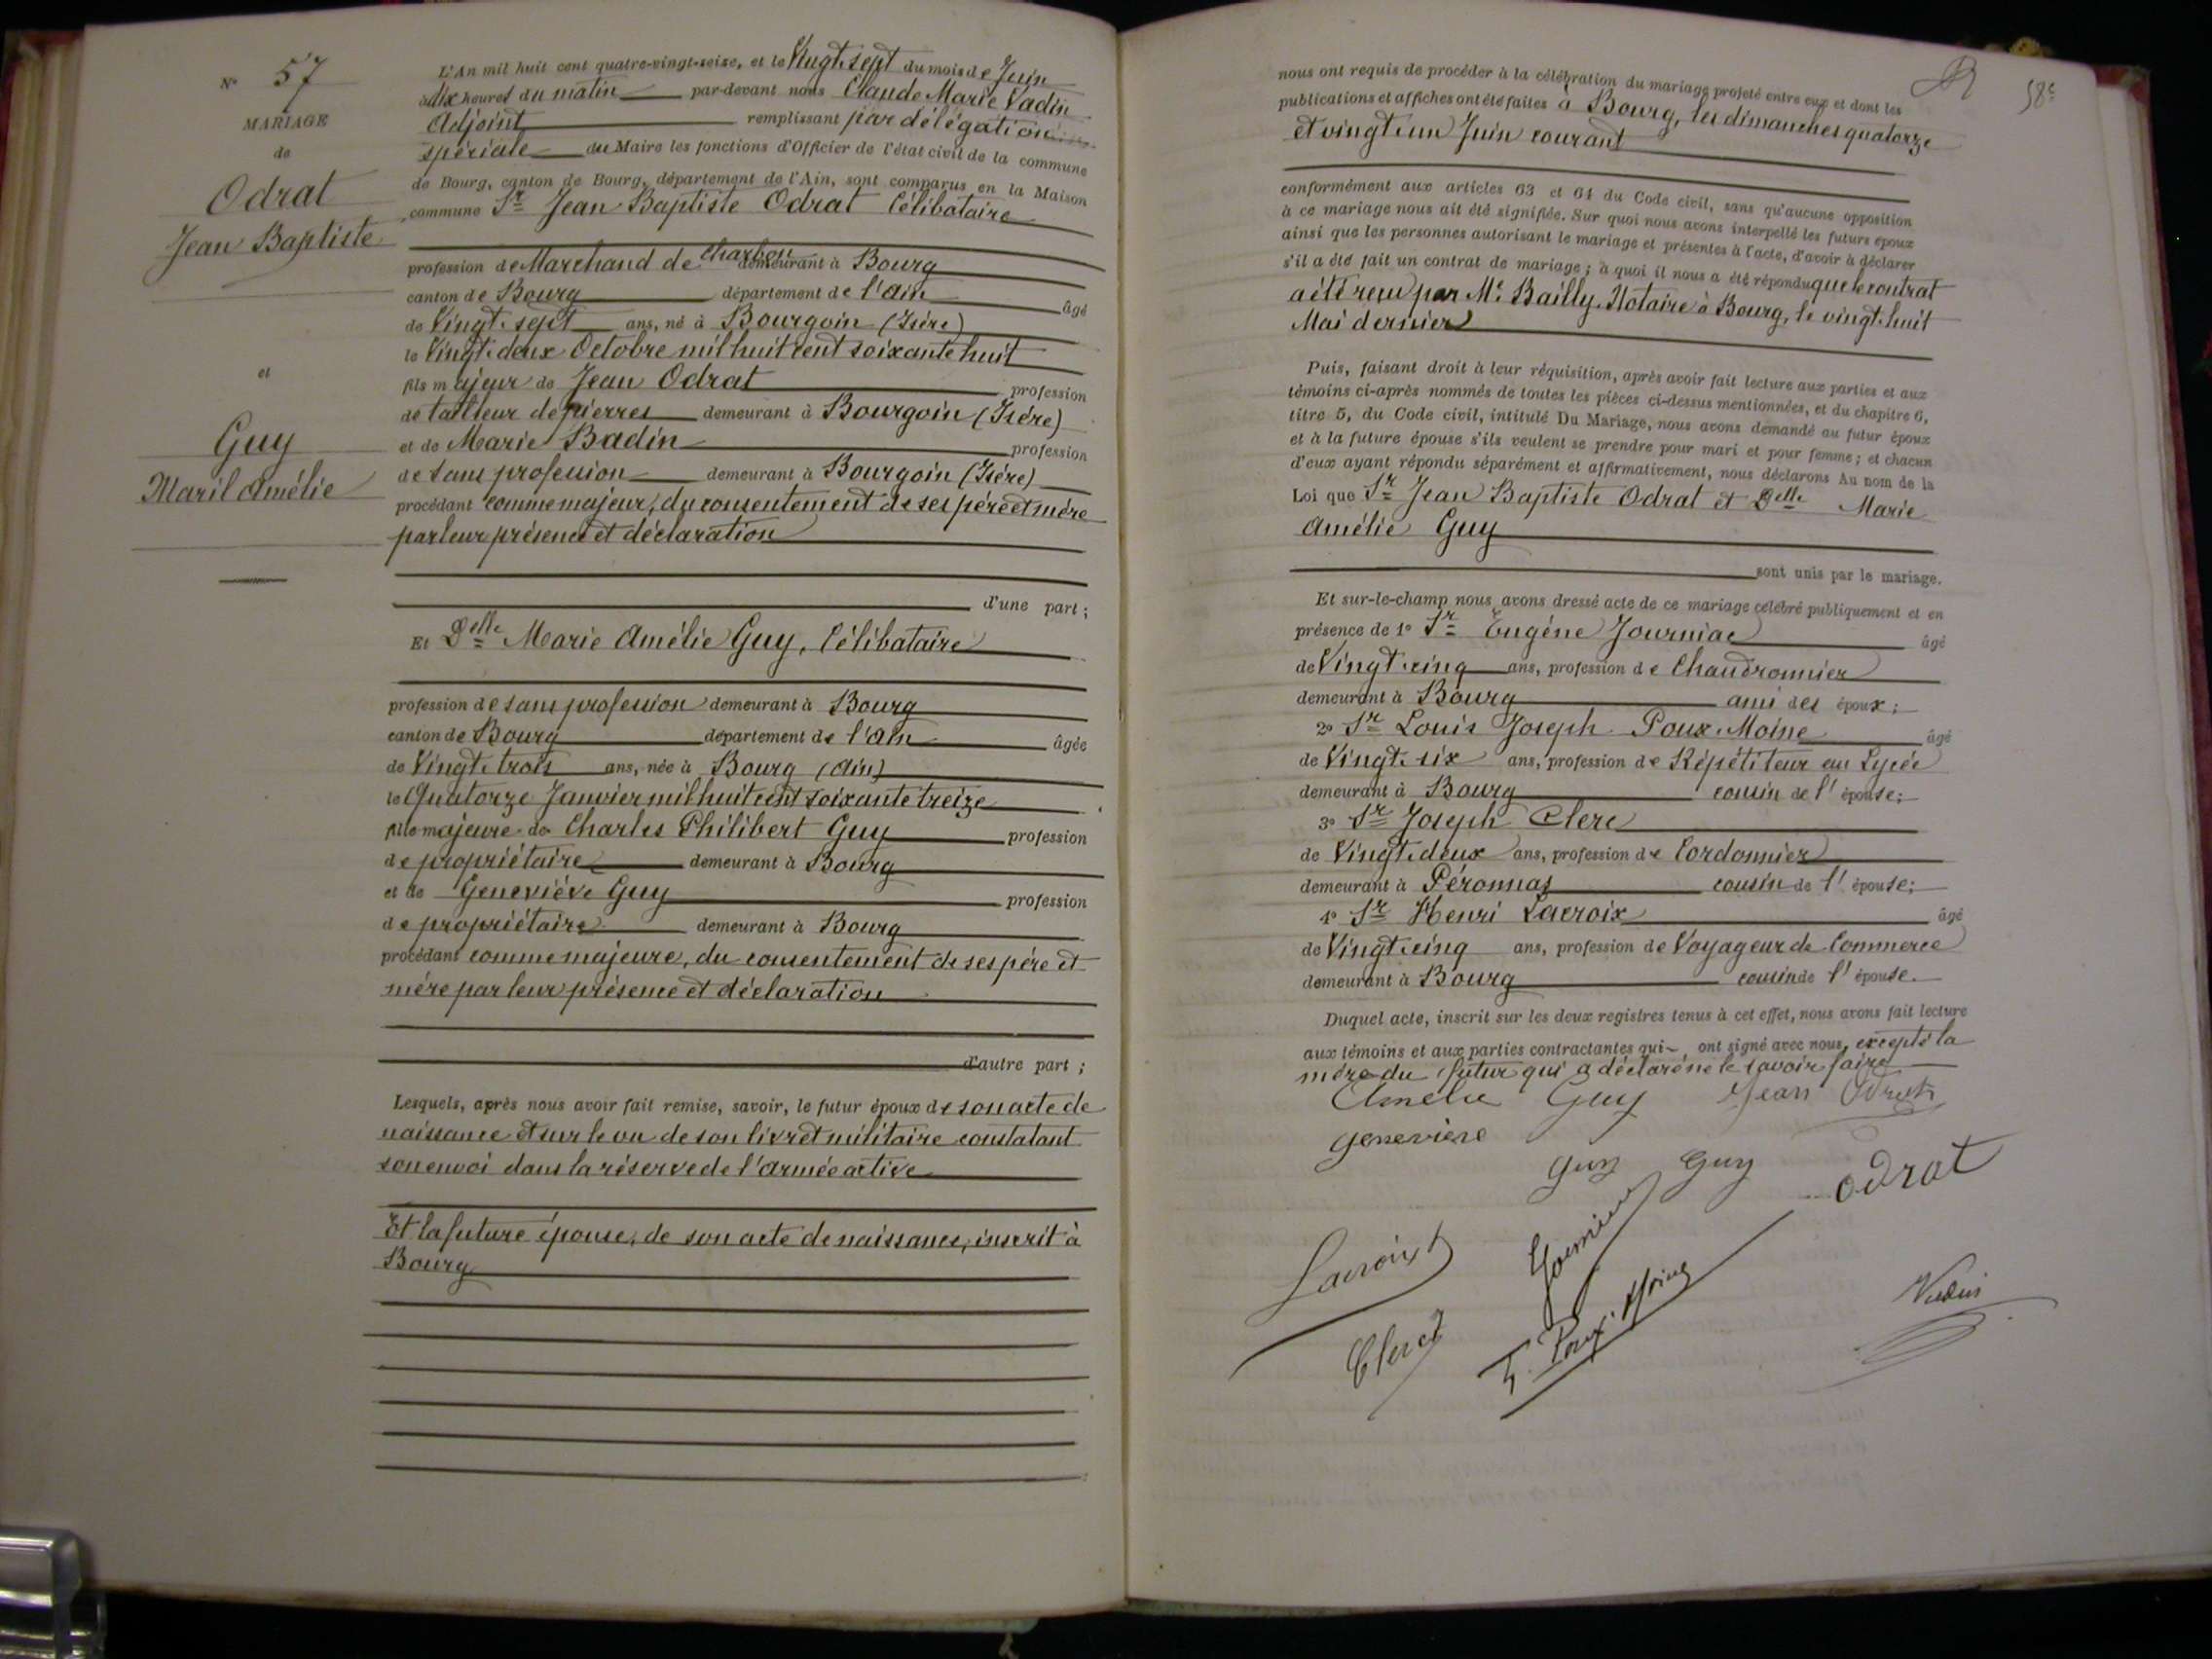 N° 57
MARIAGE
de
Odrat
Jean Baptiste
et
Guy
Marie Amélie
L'An mil huit cent quatre-vingt-seize, et le Vingt-sept du mois de Juin
à dix heures du matin par-devant nous Claude Marie Vadin
Adjoint remplissant par délégation
spéciale du Maire les fonctions d'Officier de l'état civil de la commune
de Bourg, canton de Bourg, département de l'Ain, sont comparus en la Maison
commune Sr Jean Baptiste Odrat Célibataire
profession de Marchand de Charbon demeurant à Bourg
canton de Bourg département de l'Ain âgé
de Vingt-sept ans, né à Bourgoin (Isère)
le Vingt-deux Octobre mil huit cent soixante huit
fils majeur de Jean Odrat profession
de tailleur de pierres demeurant à Bourgoin (Isère)
et de Marie Badin profession
de sans profession demeurant à Bourgoin (Isère)
procédant comme majeur, du consentement de ses père et mère
par leur présence et déclaration
d'une part ;
Et Delle Marie Amélie Guy, Célibataire
profession de sans profession demeurant à Bourg
canton de Bourg département de l'Ain âgée
de Vingt-trois ans, née à Bourg (Ain)
le Quatorze Janvier mil huit cent soixante treize
fille majeure de Charles Philibert Guy profession
de propriétaire demeurant à Bourg
et de Geneviève Guy profession
de propriétaire demeurant à Bourg
procédant comme majeure, du consentement de ses père et
mère par leur présence et déclaration
d'autre part ;
Lesquels, après nous avoir fait remise, savoir, le futur époux de son acte de
naissance et sur le vu de son livret militaire constatant
son envoi dans la réserve de l'armée active
Et la future épouse, de son acte de naissance, inscrit à
Bourg
58e
nous ont requis de procéder à la célébration du mariage projeté entre eux et dont les
publications et affiches ont été faites à Bourg, les dimanches quatorze
et vingt-un Juin courant
conformément aux articles 63 et 64 du Code civil, sans qu'aucune opposition
à ce mariage nous ait été signifiée. Sur quoi nous avons interpellé les futurs époux
ainsi que les personnes autorisant le mariage et présentes à l'acte, d'avoir à déclarer
s'il a été fait un contrat de mariage ; à quoi il nous a été répondu que le contrat
a été reçu par Me Bailly Notaire à Bourg, le vingt-huit
Mai dernier
Puis, faisant droit à leur réquisition, après avoir fait lecture aux parties et aux
témoins ci-après nommés de toutes les pièces ci-dessus mentionnées, et du chapitre 6,
titre 5, du Code civil, intitulé Du Mariage, nous avons demandé au futur époux
et à la future épouse s'ils veulent se prendre pour mari et pour femme ; et chacun
d'eux ayant répondu séparément et affirmativement, nous déclarons Au nom de la
Loi que Sr Jean Baptiste Odrat et Delle Marie
Amélie Guy
sont unis par le mariage.
Et sur-le-champ nous avons dressé acte de ce mariage célébré publiquement et en
présence de 1° Sr Eugène Journiac âgé
de Vingt-cinq ans, profession de Chaudronnier
demeurant à Bourg ami des époux ;
2° Sr Louis Joseph Poux-Moine âgé
de Vingt-six ans, profession de Répétiteur au Lycée
demeurant à Bourg cousin de l'épouse ;
3° Sr Joseph Clerc
de Vingt-deux ans, profession de Cordonnier
demeurant à Péronnas cousin de l'épouse ;
4° Sr Henri Lacroix âgé
de Vingt-cinq ans, profession de Voyageur de Commerce
demeurant à Bourg cousin de l'épouse.
Duquel acte, inscrit sur les deux registres tenus à cet effet, nous avons fait lecture
aux témoins et aux parties contractantes qui ont signé avec nous, excepté la
mère du futur qui a déclaré ne le savoir faire
Amélie Guy Jean Odrat
Genevieve
Guy Guy Odrat
Lacroix Journiac
Clerc L. Poux-Moine Vadin